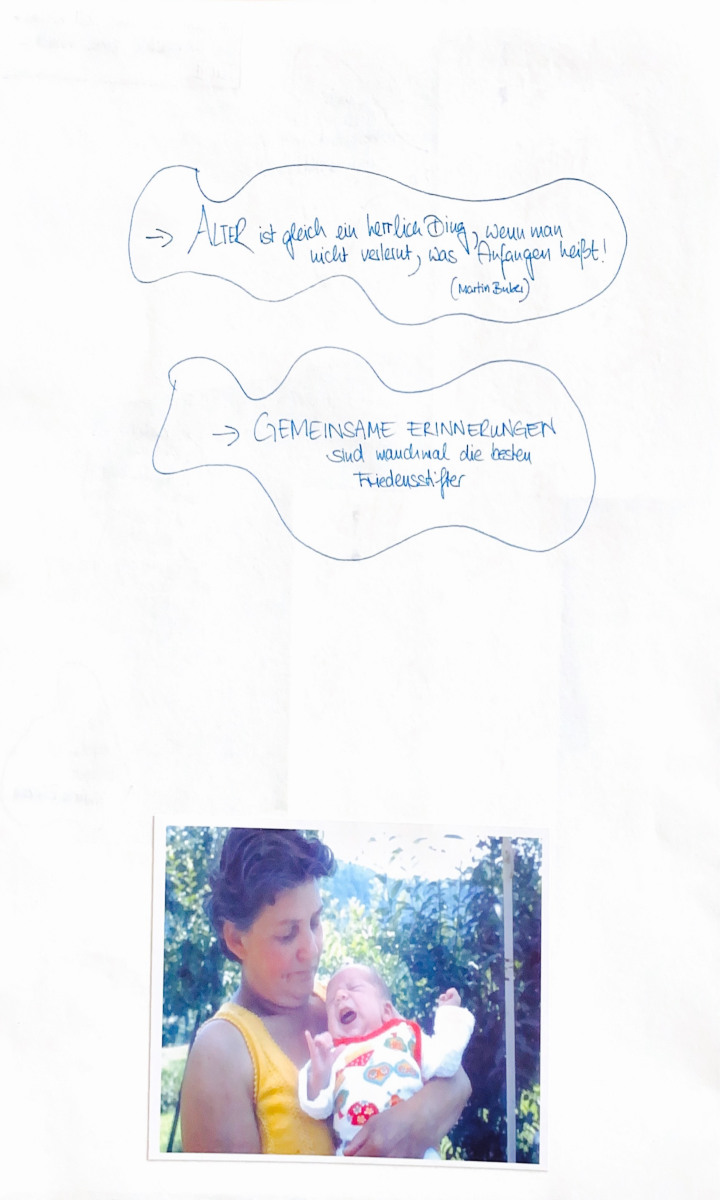 → ALTER ist gleich ein herrlich Ding, wenn man
nicht verlernt, was Anfangen heißt!
(Martin Buber)
→ GEMEINSAME ERINNERUNGEN
sind manchmal die besten
Friedensstifter